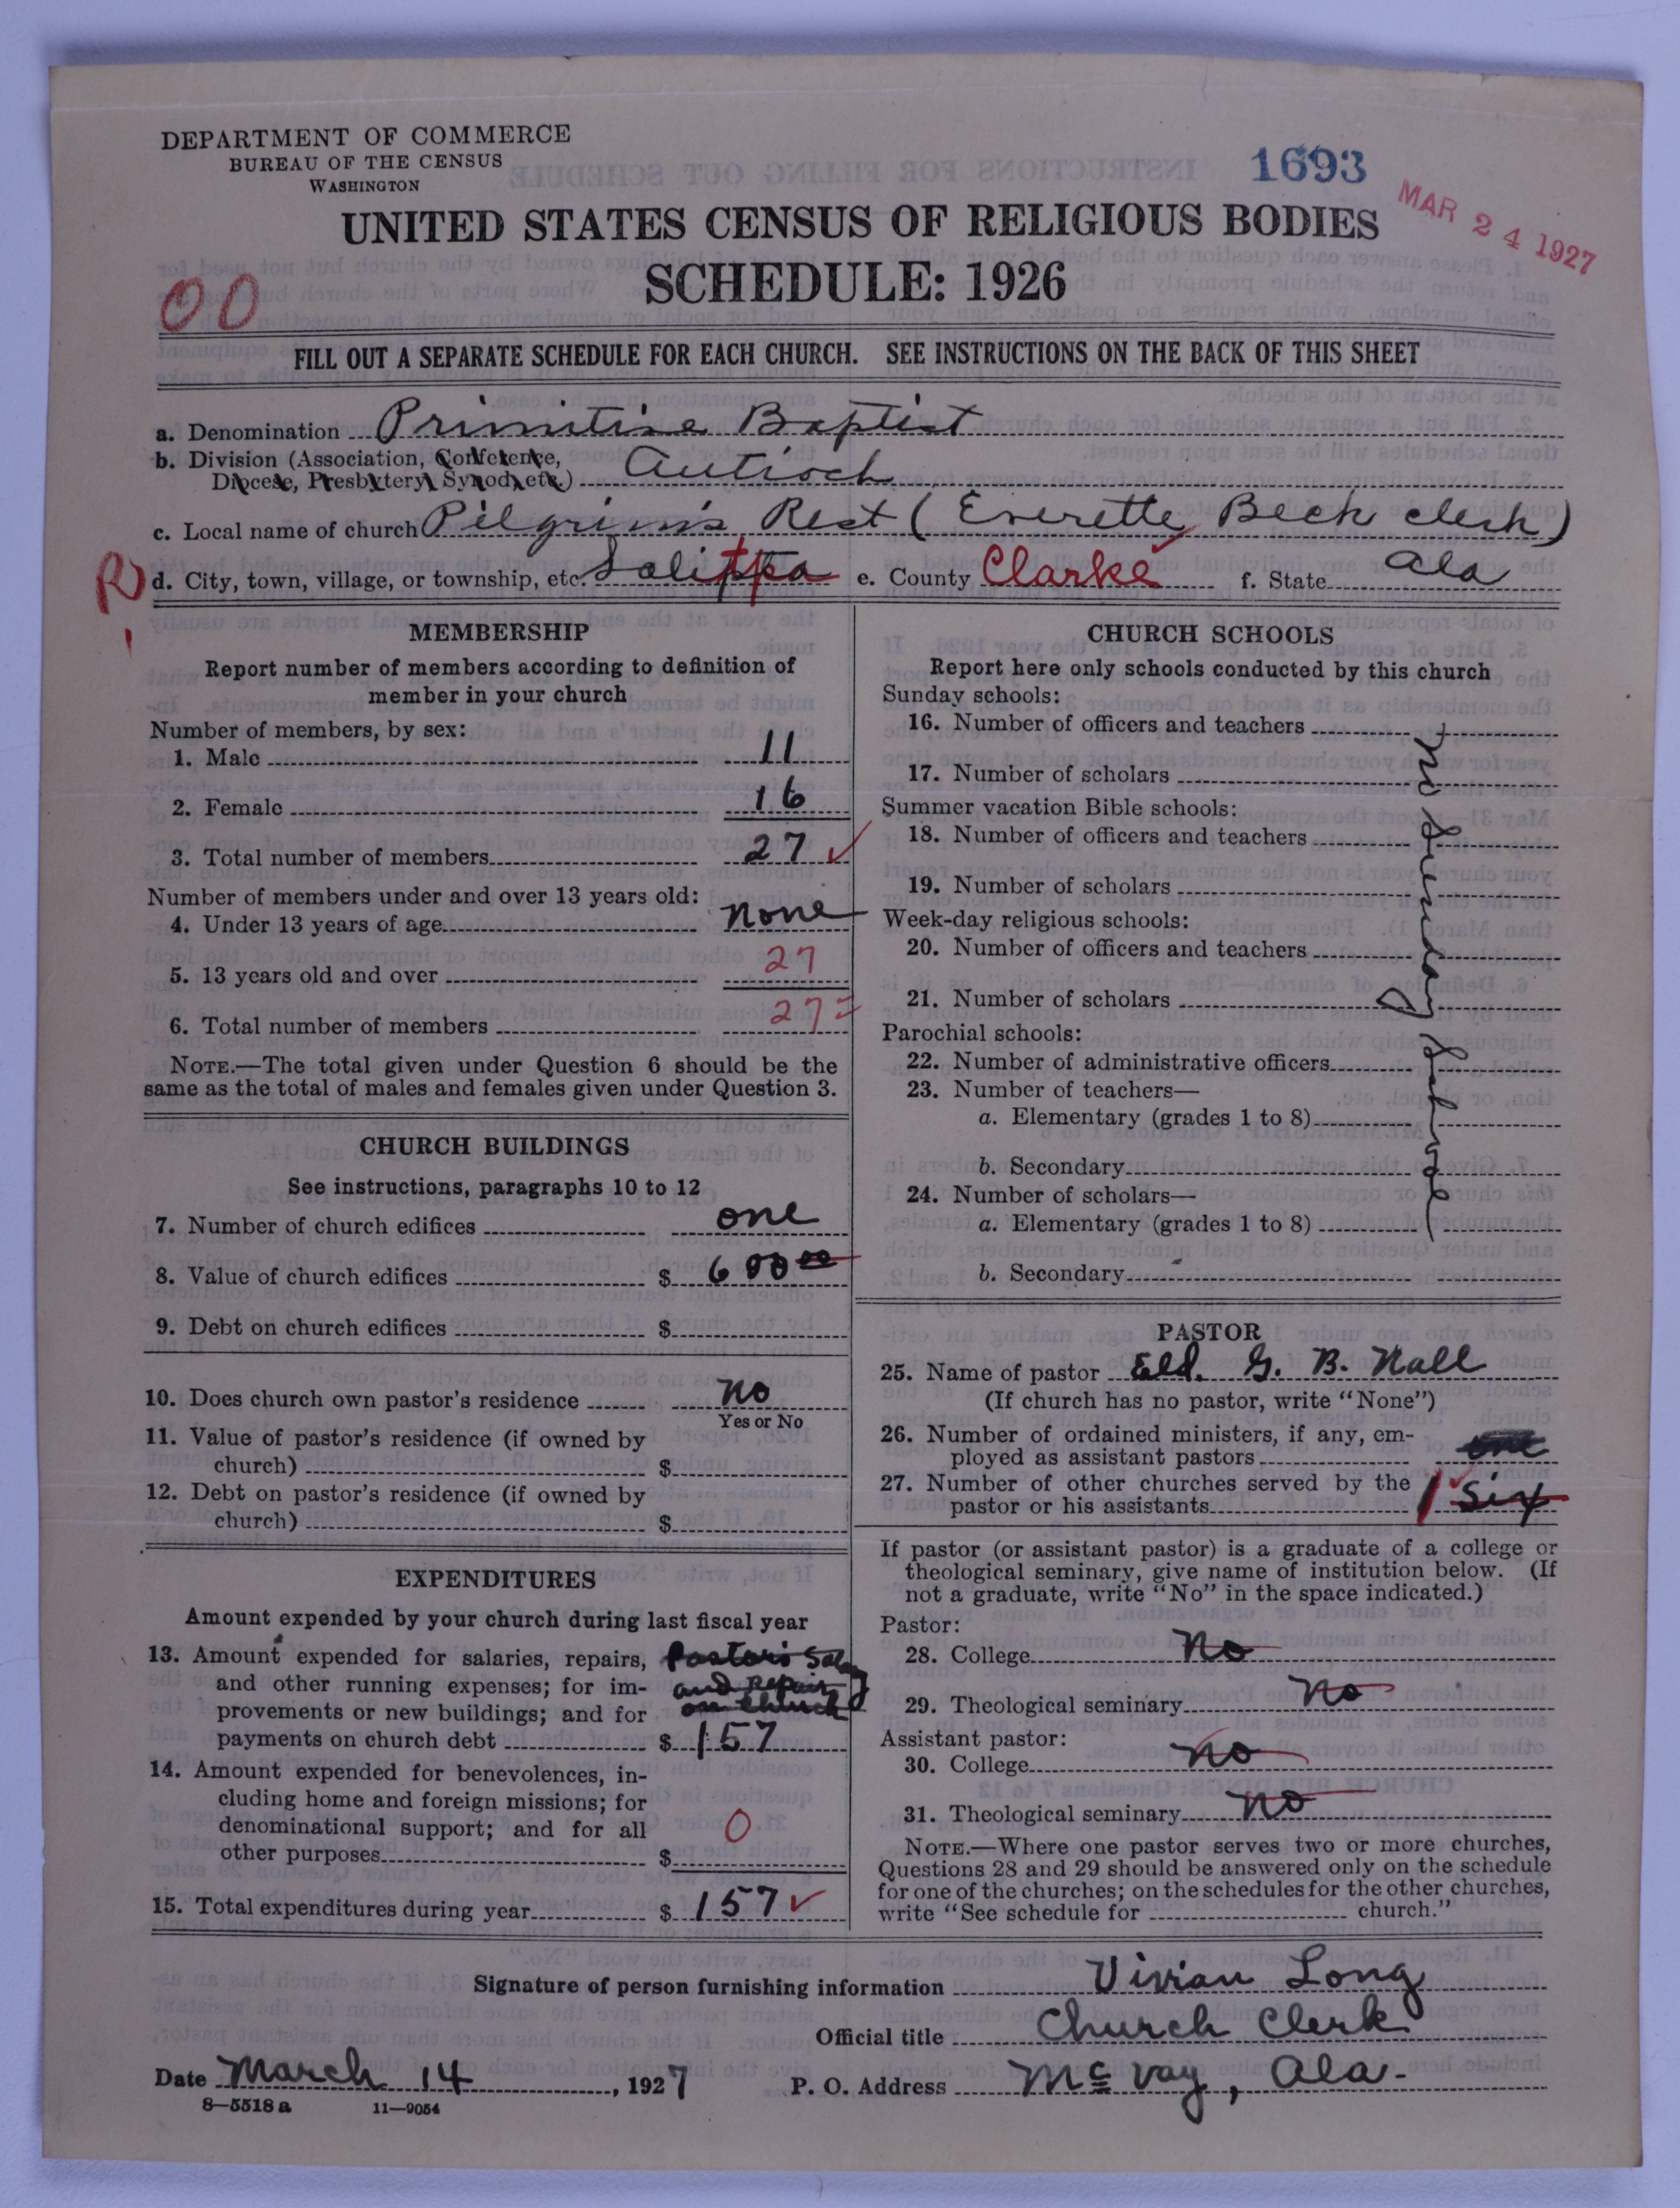 DEPARTMENT OF COMMERCE
BUREAU OF THE CENSUS
WASHINGTON
1693
MAR 24 1927
UNITED STATES CENSUS OF RELIGIOUS BODIES
SCHEDULE: 1926
00
FILL OUT A SEPARATE SCHEDULE FOR EACH CHURCH. SEE INSTRUCTIONS ON THE BACK OF THIS SHEET
a. Denomination Primitive Baptist
b. Division (Association, Conference,
Diocese, Presbytery, Synod, etc.) Antioch
c. Local name of church Pilgrim's Rest (Everette Beck clerk)
R d. City, town, village, or township, etc. Salitpa e. County Clarke f. State Ala
MEMBERSHIP
Report number of members according to definition of
member in your church
Number of members, by sex:
1. Male 11
2. Female 16
3. Total number of members 27 ✓
Number of members under and over 13 years old:
4. Under 13 years of age none
5. 13 years old and over 27
6. Total number of members 27
NOTE.—The total given under Question 6 should be the
same as the total of males and females given under Question 3.
CHURCH BUILDINGS
See instructions, paragraphs 10 to 12
7. Number of church edifices one
8. Value of church edifices $ 600 00
9. Debt on church edifices $
10. Does church own pastor's residence no
Yes or No
11. Value of pastor's residence (if owned by
church) $
12. Debt on pastor's residence (if owned by
church) $
EXPENDITURES
Amount expended by your church during last fiscal year
13. Amount expended for salaries, repairs, Pastor's Salary
and other running expenses; for im- and repair
provements or new buildings; and for on church
payments on church debt $ 157
14. Amount expended for benevolences, in-
cluding home and foreign missions; for
denominational support; and for all
other purposes $ 0
15. Total expenditures during year $ 157 ✓
CHURCH SCHOOLS
Report here only schools conducted by this church
Sunday schools:
16. Number of officers and teachers
17. Number of scholars
Summer vacation Bible schools:
18. Number of officers and teachers
19. Number of scholars
Week-day religious schools:
20. Number of officers and teachers
21. Number of scholars
Parochial schools:
22. Number of administrative officers
23. Number of teachers—
a. Elementary (grades 1 to 8)
b. Secondary
24. Number of scholars—
a. Elementary (grades 1 to 8)
b. Secondary
no Sunday School
PASTOR
25. Name of pastor Eld. G. B. Nall
(If church has no pastor, write "None")
26. Number of ordained ministers, if any, em-
ployed as assistant pastors one
27. Number of other churches served by the
pastor or his assistants 1 six
If pastor (or assistant pastor) is a graduate of a college or
theological seminary, give name of institution below. (If
not a graduate, write "No" in the space indicated.)
Pastor:
28. College no
29. Theological seminary no
Assistant pastor:
30. College no
31. Theological seminary no
NOTE.—Where one pastor serves two or more churches,
Questions 28 and 29 should be answered only on the schedule
for one of the churches; on the schedules for the other churches,
write "See schedule for church."
Signature of person furnishing information Vivian Long
Official title Church Clerk
Date March 14, 1927 P. O. Address McVay, Ala.
8—5518 a 11—9054